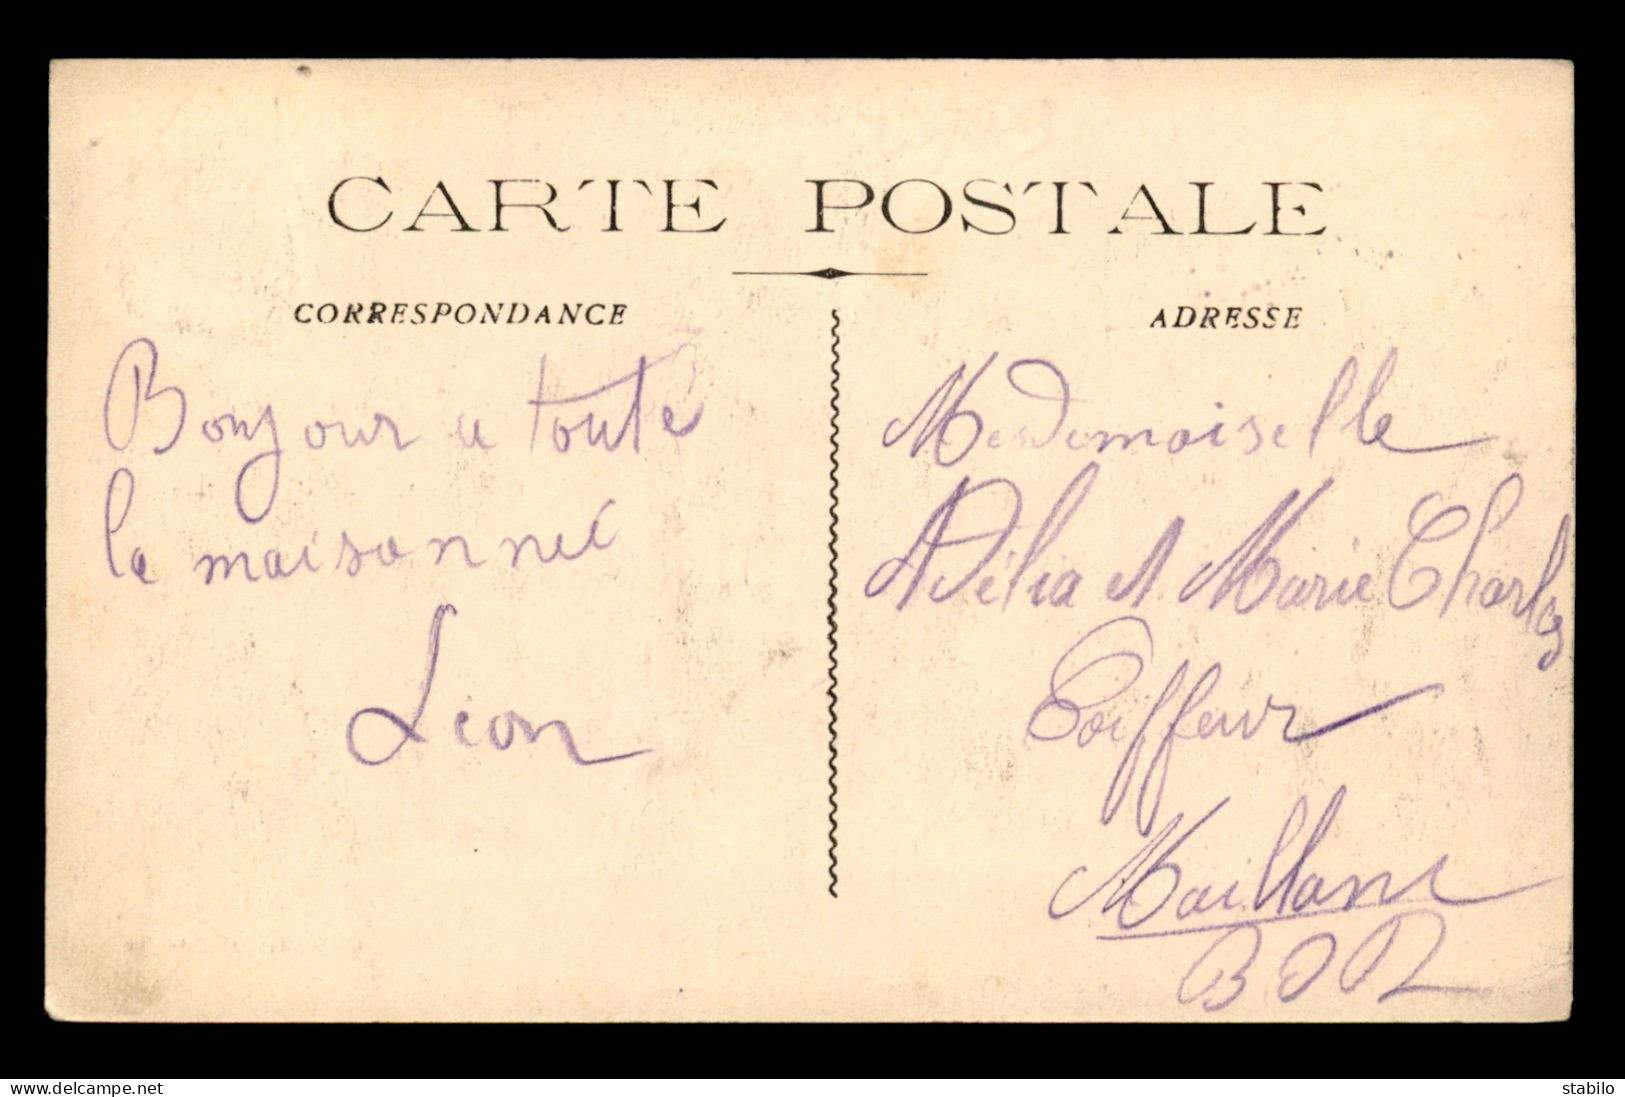 CARTE POSTALE
CORRESPONDANCE
Bonjour a toute
la maisonneé
Léon
ADRESSE
Mesdemoiselle
Adélia et Marie Charles
Coiffeur
Maillane
BDR
https://www.delcampe.net
stabilo